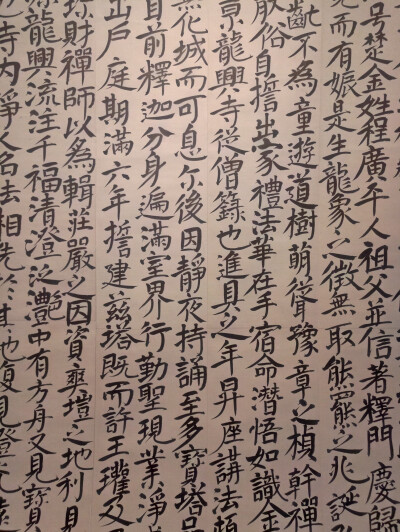 号楚金姓程廣平人祖父並信著釋門慶歸
而有娠是生龍象之徵無取熊羆之兆誕
齔不為童遊道樹萌聳豫章之楨幹禪
厭俗自誓出家禮法華在手宿命潛悟如識金
京龍興寺從僧籙也進具之年昇座講法頓
無化城而可息尔後因靜夜持誦至多寶塔品
目前釋迦分身遍滿空界行勤聖現業淨
出戶庭期滿六年誓建茲塔既而許王瓘及
珍財禪師以為輯莊嚴之因資爽塏之地利見
源龍興流注千福清澄泛灩中有方舟又見寶
寺内淨人名法相先於其地復見燈光